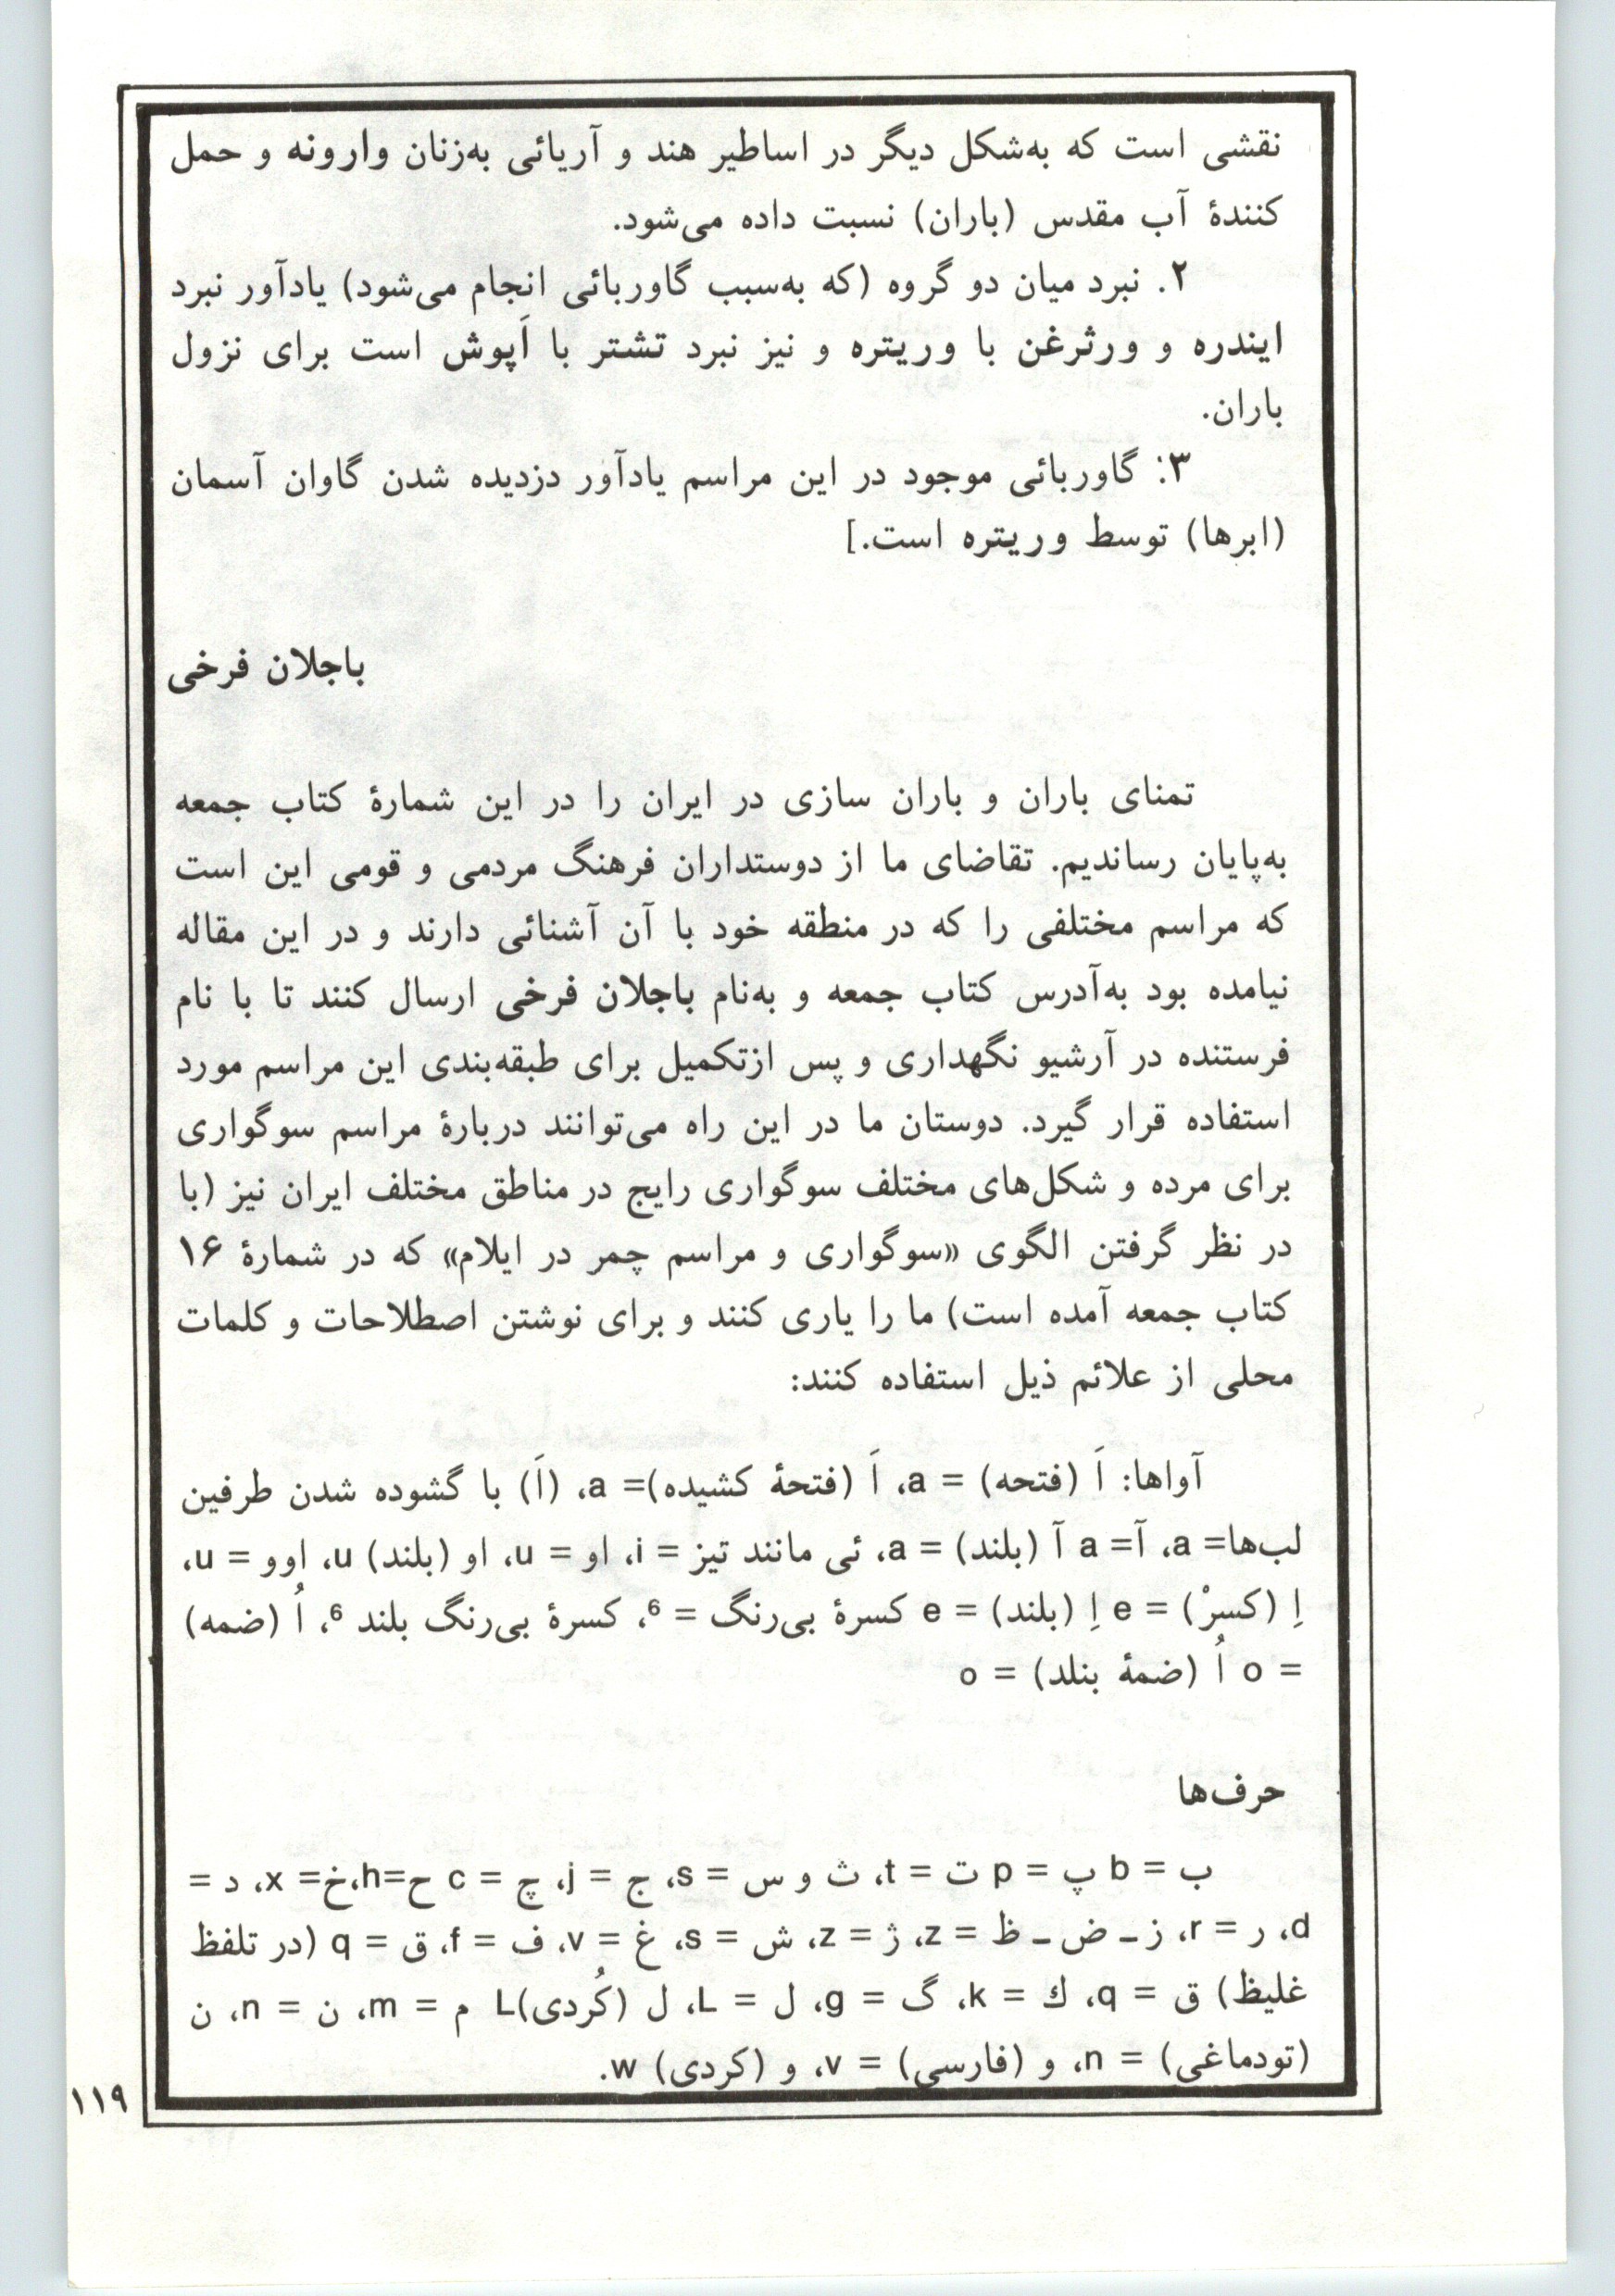 نقشی است که به‌شکل دیگر در اساطیر هند و آریائی به‌زنان وارونه و حمل
کنندهٔ آب مقدس (باران) نسبت داده می‌شود.
۲. نبرد میان دو گروه (که به‌سبب گاوربائی انجام می‌شود) یادآور نبرد
ایندره و ورثرغن با وریتره و نیز نبرد تشتر با اَپوش است برای نزول
باران.
۳: گاوربائی موجود در این مراسم یادآور دزدیده شدن گاوان آسمان
(ابرها) توسط وریتره است.]
باجلان فرخی
تمنای باران و باران سازی در ایران را در این شمارهٔ کتاب جمعه
به‌پایان رساندیم. تقاضای ما از دوستداران فرهنگ مردمی و قومی این است
که مراسم مختلفی را که در منطقه خود با آن آشنائی دارند و در این مقاله
نیامده بود به‌آدرس کتاب جمعه و به‌نام باجلان فرخی ارسال کنند تا با نام
فرستنده در آرشیو نگهداری و پس ازتکمیل برای طبقه‌بندی این مراسم مورد
استفاده قرار گیرد. دوستان ما در این راه می‌توانند دربارهٔ مراسم سوگواری
برای مرده و شکل‌های مختلف سوگواری رایج در مناطق مختلف ایران نیز (با
در نظر گرفتن الگوی «سوگواری و مراسم چمر در ایلام» که در شمارهٔ ۱۶
کتاب جمعه آمده است) ما را یاری کنند و برای نوشتن اصطلاحات و کلمات
محلی از علائم ذیل استفاده کنند:
آواها: اَ (فتحه) = a، اَ (فتحهٔ کشیده)= a، (اَ) با گشوده شدن طرفین
لب‌ها= a، آ= a آ (بلند) = a، ئی مانند تیز = i، او = u، او (بلند) u، اوو = u،
اِ (کسرْ) = e اِ (بلند) = e کسرهٔ بی‌رنگ = 6، کسرهٔ بی‌رنگ بلند 6، اُ (ضمه)
= o اُ (ضمهٔ بنلد) = o
حرف‌ها
ب = b پ = p ت = t، ث و س = s، ج = j، چ = c ح=h،خ= x، د =
d، ر = r، ز ـ ض ـ ظ = z، ژ = z، ش = s، غ = v، ف = f، ق = q (در تلفظ
غلیظ) ق = q، ك = k، گ = g، ل = L، ل (کُردی)L م = m، ن = n، ن
(تودماغی) = n، و (فارسی) = v، و (کردی) w.
۱۱۹